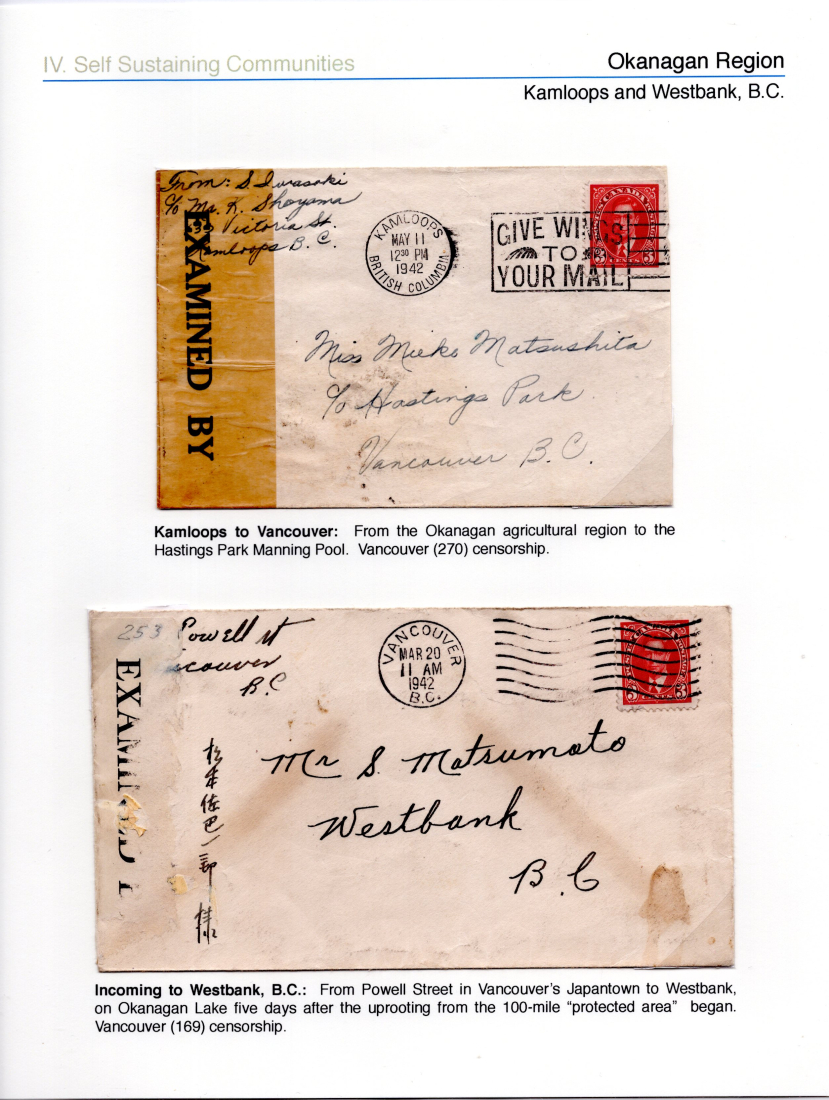 IV. Self Sustaining Communities
Okanagan Region
Kamloops and Westbank, B.C.
From: S. Iwasaki
c/o Mr. K. Shoyama
Victoria St.
Kamloops B.C.
EXAMINED BY
KAMLOOPS
MAY 11
12³⁰ PM
1942
BRITISH COLUMBIA
GIVE WINGS
TO
YOUR MAIL
CANADA
3 CENTS 3
Miss Mieko Matsushita
c/o Hastings Park
Vancouver B.C.
Kamloops to Vancouver: From the Okanagan agricultural region to the
Hastings Park Manning Pool. Vancouver (270) censorship.
253 Powell St
Vancouver
B.C
EXAMINED B
VANCOUVER
MAR 20
11 AM
1942
B.C.
3 3
Mr S. Matsumoto
Westbank
B C
松本佐巴一郎 様
Incoming to Westbank, B.C.: From Powell Street in Vancouver's Japantown to Westbank,
on Okanagan Lake five days after the uprooting from the 100-mile “protected area” began.
Vancouver (169) censorship.